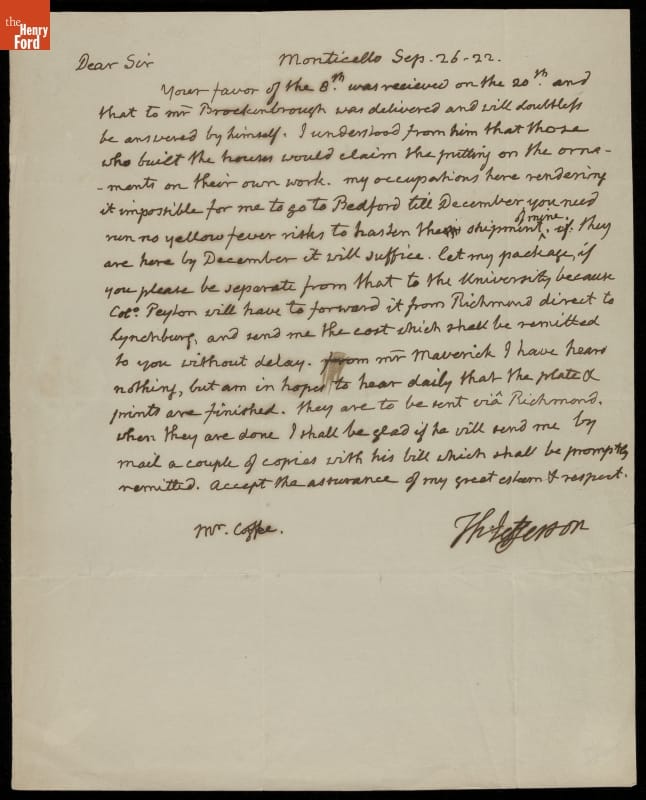 the
Henry
Ford
Dear Sir Monticello Sep. 26-22.
Your favor of the 8th was recieved on the 20th and
that to mr Brockenbrough was delivered and will doubtless
be answered by himself. I understood from him that those
who built the houses would claim the putting on the orna-
-ments on their own work. my occupations here rendering
it impossible for me to go to Bedford till December you need
of mine
run no yellow fever risks to hasten the shipment, if they
are here by December it will suffice. let my package, if
you please be separate from that to the University because
Colo. Peyton will have to forward it from Richmond direct to
Lynchburg, and send me the cost which shall be remitted
to you without delay. from mr Maverick I have heard
nothing, but am in hopes to hear daily that the plate &
prints are finished. they are to be sent viâ Richmond.
when they are done I shall be glad if he will send me by
mail a couple of copies with his bill which shall be promptly
remitted. Accept the assurance of my great esteem & respect.
Mr. Coffee. Th: Jefferson